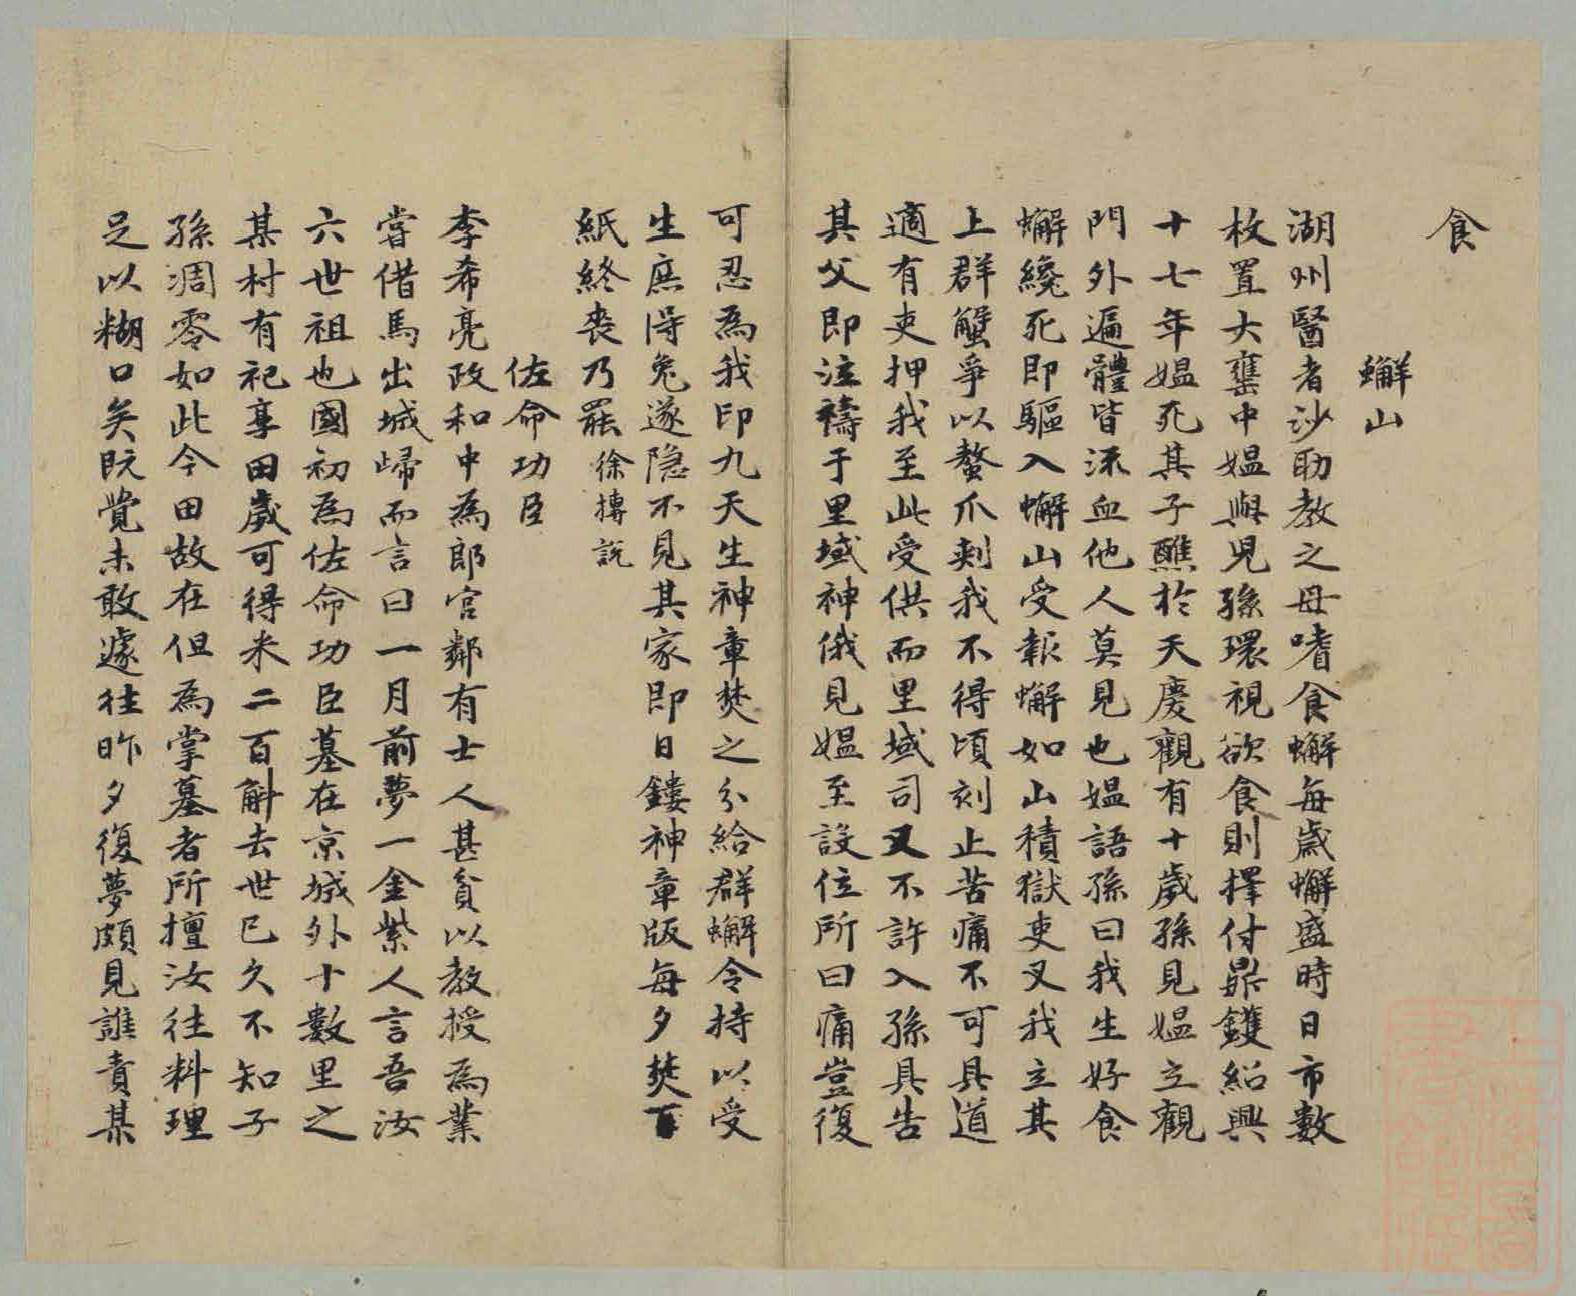 食
蠏山
湖州醫者沙助教之母嗜食蠏每歲蠏盛時日市數
枚置大甕中媼與兒孫環視欲食則擇付鼎鑊紹興
十七年媼死其子醮於天慶觀有十歲孫見媼立觀
門外遍體皆流血他人莫見也媼語孫曰我生好食
蠏纔死即驅入蠏山受報蠏如山積獄吏叉我立其
上群蟹爭以螯爪刺我不得頃刻止苦痛不可具道
適有吏押我至此受供而里域司又不許入孫具告
其父即注禱于里域神俄見媼至設位所曰痛豈復
可忍為我印九天生神章焚之分給群蠏令持以受
生庶得免遂隐不見其家即日鏤神章版每夕焚百
紙終丧乃罷徐摶說
佐命功臣
李希亮政和中為郎官鄰有士人甚貧以教授為業
嘗借馬出城歸而言曰一月前夢一金紫人言吾汝
六世祖也國初為佐命功臣墓在京城外十數里之
某村有祀享田歲可得米二百斛去世已久不知子
孫凋零如此今田故在但為掌墓者所擅汝往料理
足以糊口矣既覺未敢遽往昨夕復夢頗見誰責某